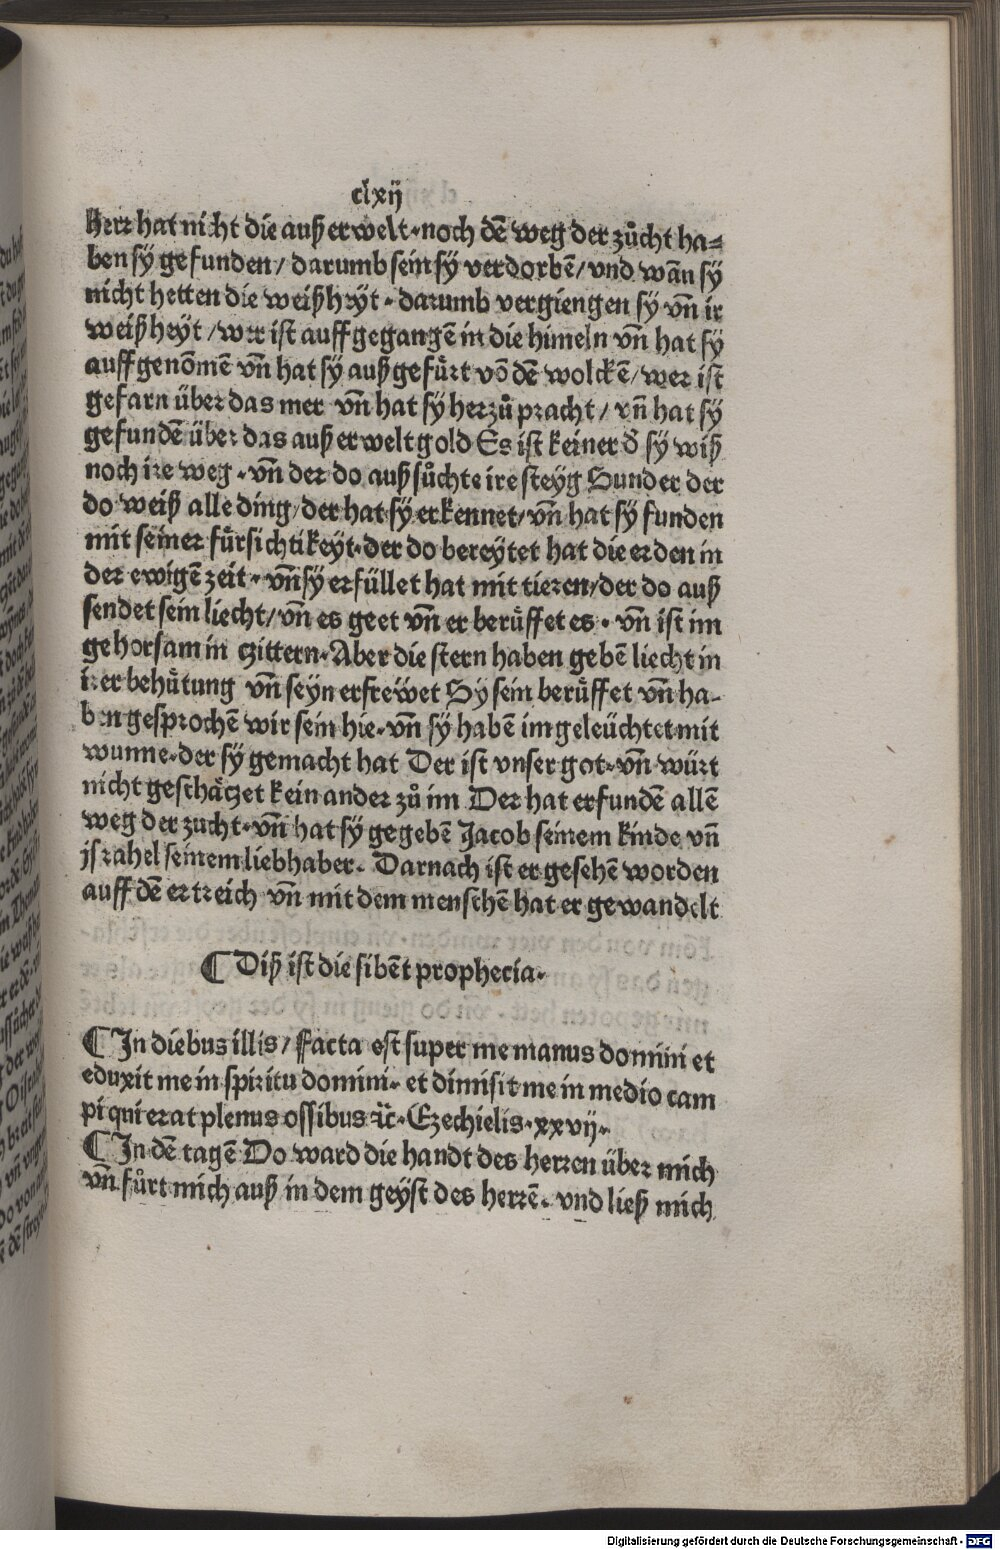 clxij
Herr hat nicht die auß erwelt·noch dē weg der zůcht ha⸗
ben sÿ gefunden/ darumb sein sÿ verdorbē/vnd wān sÿ
nicht hetten die weißheÿt·darumb vergiengen sÿ vñ ir
weißheÿt/wer ist auffgegangē in die himeln vñ hat sÿ
auffgenōmē vñ hat sÿ außgefůrt vō dē wolckē/wer ist
gefarn über das mer vñ hat sÿ herzů pracht/vñ hat sÿ
gefundē über das auß erwelt gold Es ist keiner d̄ sÿ wiß
noch ire weg·vñ der do auß sůchte ire steÿg Sunder der
do weiß alle ding/der hat sÿ erkennet/vñ hat sÿ funden
mit seiner fůrsichtikeÿt·der do bereÿtet hat die erden in
der ewigē zeit·vñ sÿ erfüllet hat mit tieren/der do auß
sendet sein liecht/vñ es geet vñ er berůffet es·vñ ist im
gehorsam in czittern·Aber die stern haben gebē liecht in
irer behůtung vñ seyn erfrewet Sy sein berůffet vñ ha-
ben gesprochē wir sein hie·vñ sÿ habē im geleüchtet mit
wunne·der sÿ gemacht hat Der ist vnser got·vñ würt
nicht geschätzet kein ander zů im Der hat erfundē allē
weg der zucht·vñ hat sÿ gegebē Jacob seinem kinde vñ
israhel seinem liebhaber· Darnach ist er gesehē worden
auff dē ertreich vñ mit dem menschē hat er gewandelt
¶ Diß ist die sibēt prophecia·
¶ In diebus illis/ Facta est super me manus domini et
eduxit me in spiritu domini·et dimisit me in medio cam
pi qui erat plenus ossibus ꝛc̄·Ezechielis·xxvij·
¶ In dē tagē Do ward die handt des herren über mich
vñ fůrt mich auß in dem geÿst des herrē·vnd ließ mich
Digitalisierung gefördert durch die Deutsche Forschungsgemeinschaft - DFG